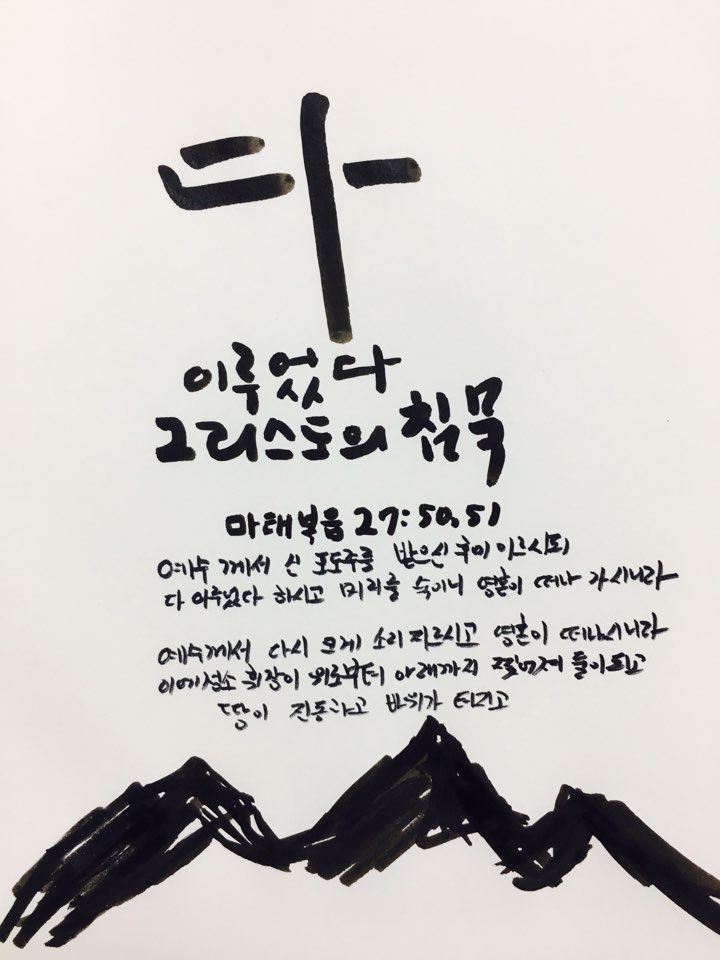 다
이루었다
그리스도의 침묵
마태복음 27:50,51
예수께서 신 포도주를 받으신 후에 이르시되
다 이루었다 하시고 머리를 숙이니 영혼이 떠나 가시니라
예수께서 다시 크게 소리 지르시고 영혼이 떠나시니라
이에 성소 휘장이 위로부터 아래까지 찢어져 둘이 되고
땅이 진동하고 바위가 터지고